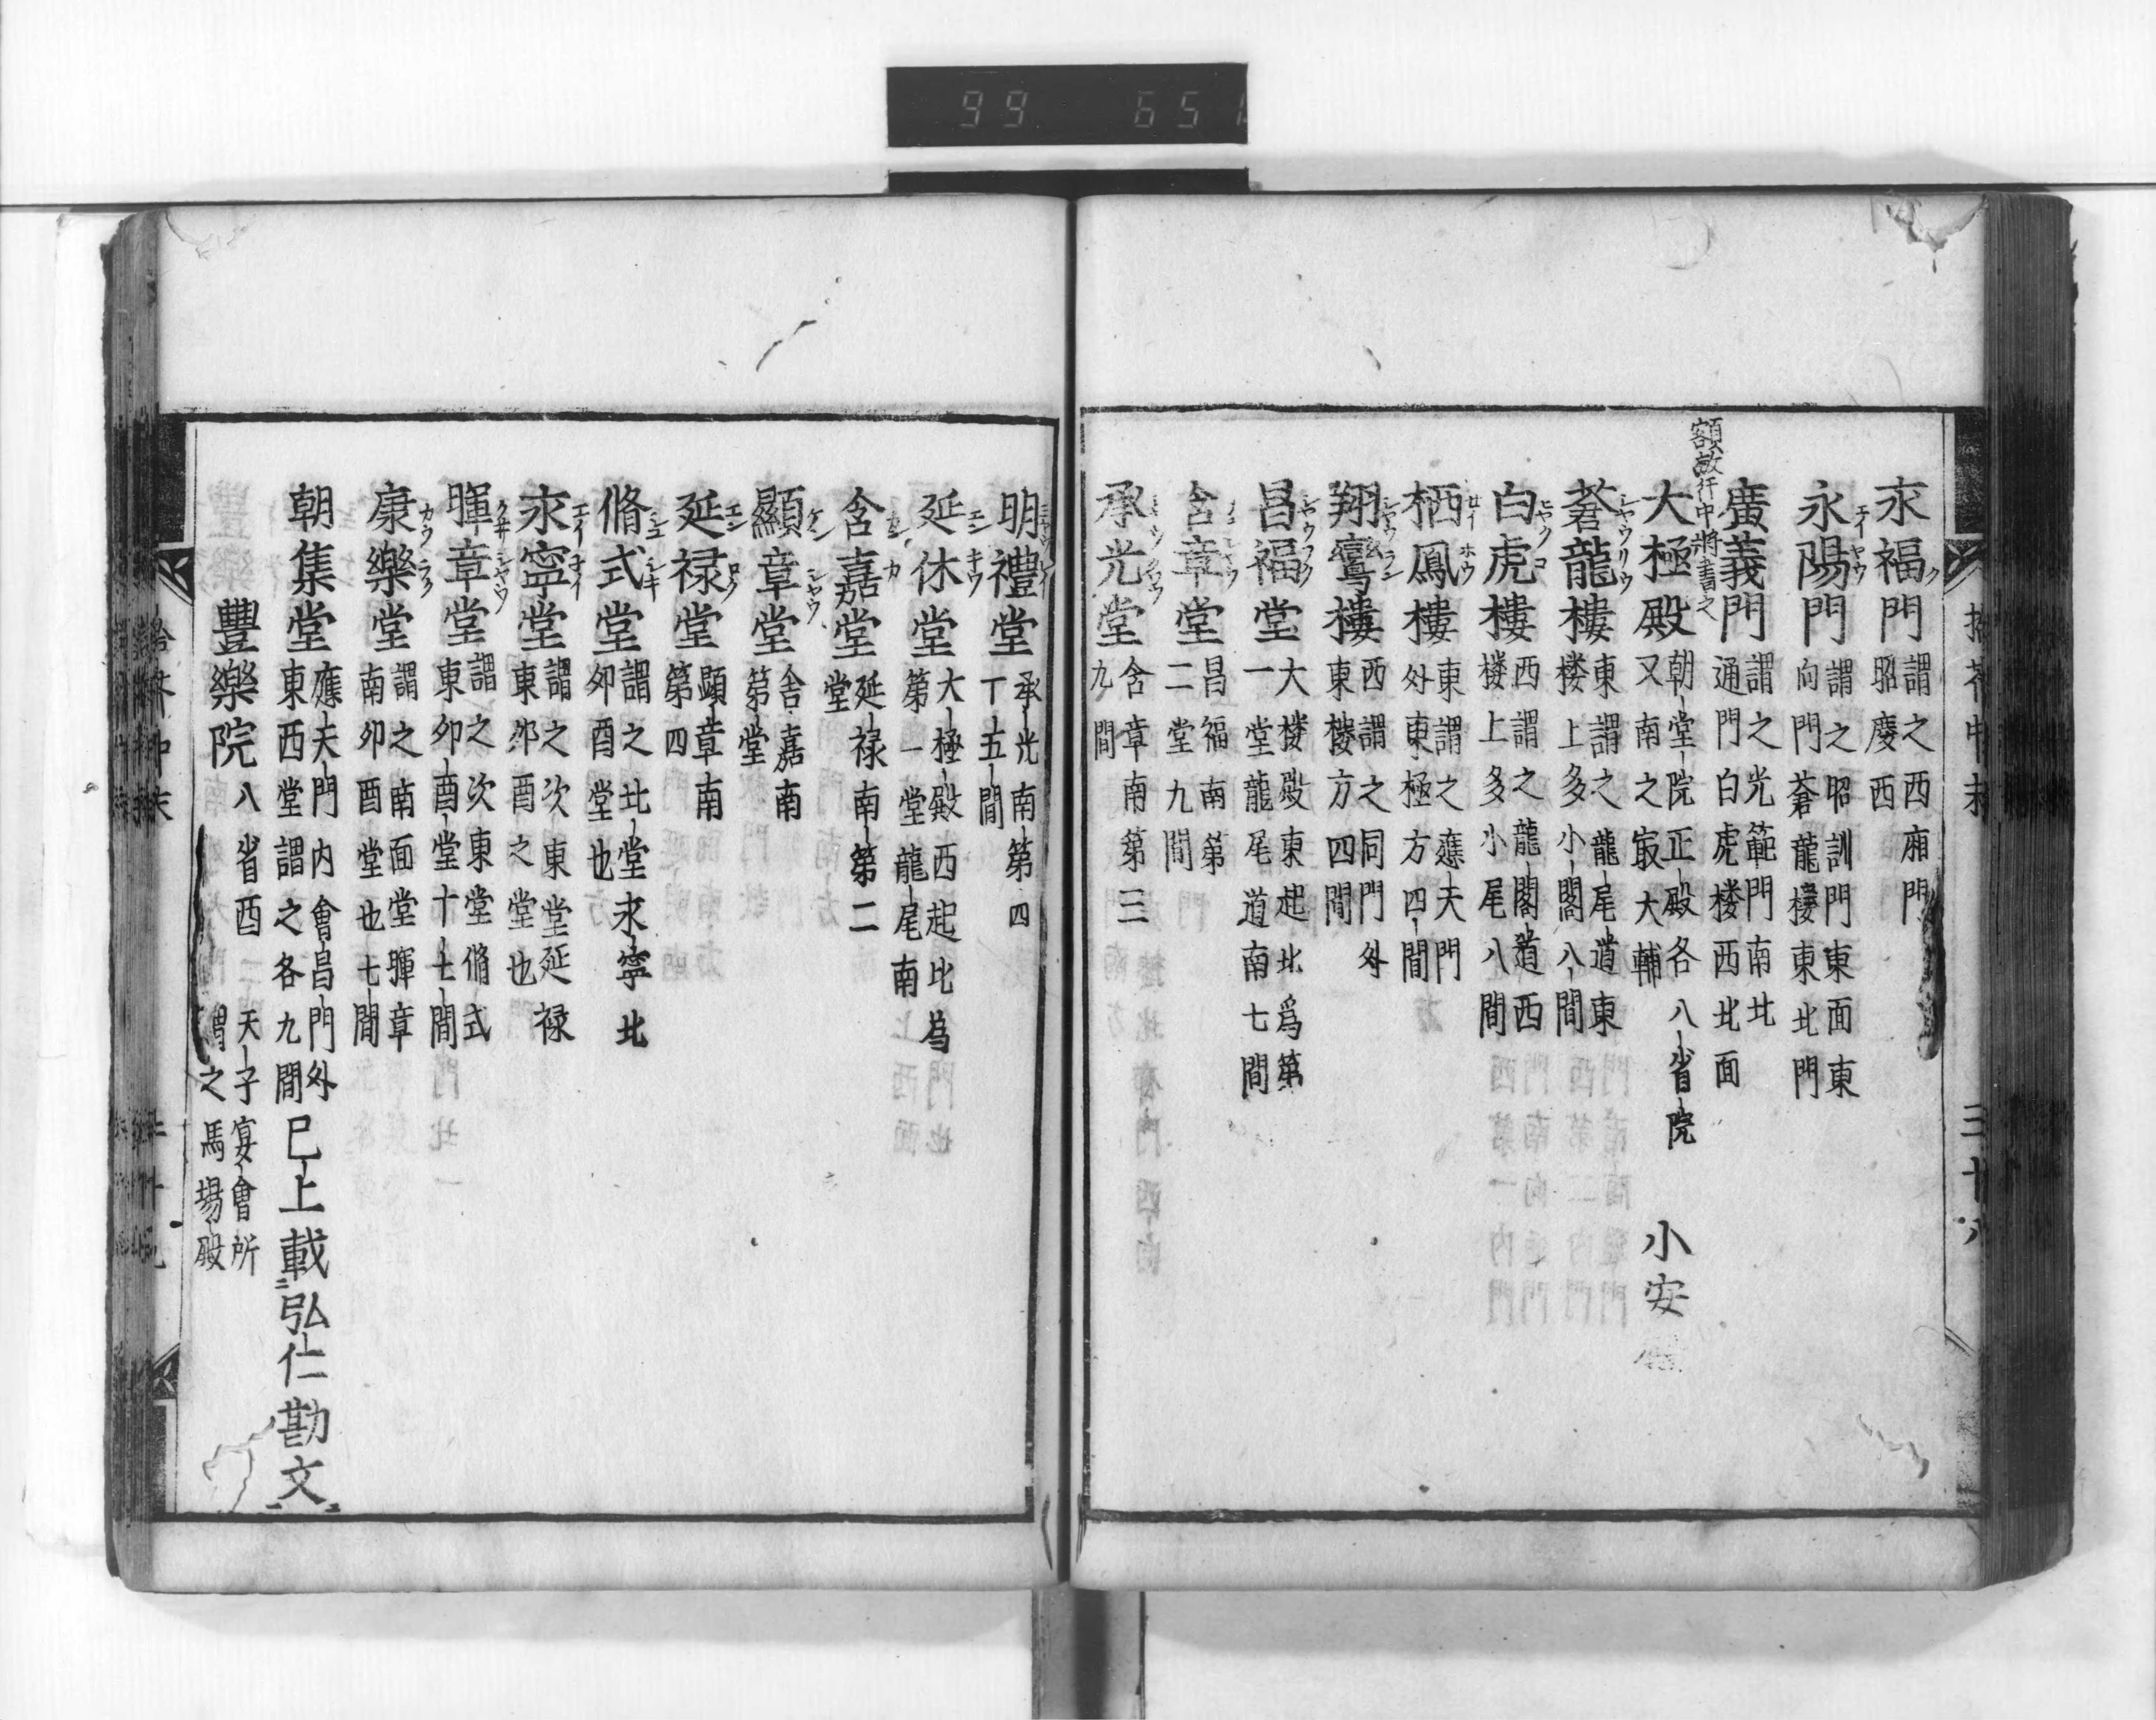 99 651
永福門 謂之西廂門
昭慶西
永陽門 謂之昭訓門東面東
向門蒼龍樓東北門
廣義門 謂之光範門南北
通門白虎楼西北面
額敢行中將書之
大極殿 朝堂院正殿各八省院
又南之㝡大輔 小安
蒼龍樓 東謂之龍尾道東
楼上多小閣八間
白虎樓 西謂之龍閣道西
楼上多小尾八間
栖鳳樓 東謂之應天門
外東極方四間
翔鸞樓 西謂之同門外
東楼方四間
昌福堂 大楼殿東起北爲第
一堂龍尾道南七間
含章堂 昌福南第
二堂九間
承光堂 含章南第三
九間
明禮堂 承光南第四
丁五間
延休堂 大極殿西起比為
第一堂龍尾南
含嘉堂 延禄南第二
堂
顯章堂 含嘉南
第堂
延禄堂 顕章南
第四
脩式堂 謂之北堂永寧北
夘酉堂也
永寧堂 謂之次東堂延禄
東夘酉之堂也
暉章堂 謂之次東堂脩式
東夘酉堂十七間
康樂堂 謂之南面堂暉章
南夘酉堂也七間
朝集堂 應天門内會昌門外
東西堂謂之各九間 已上載弘仁勘文
豐樂院 八省酉 天子宴會所
謂之馬場殿